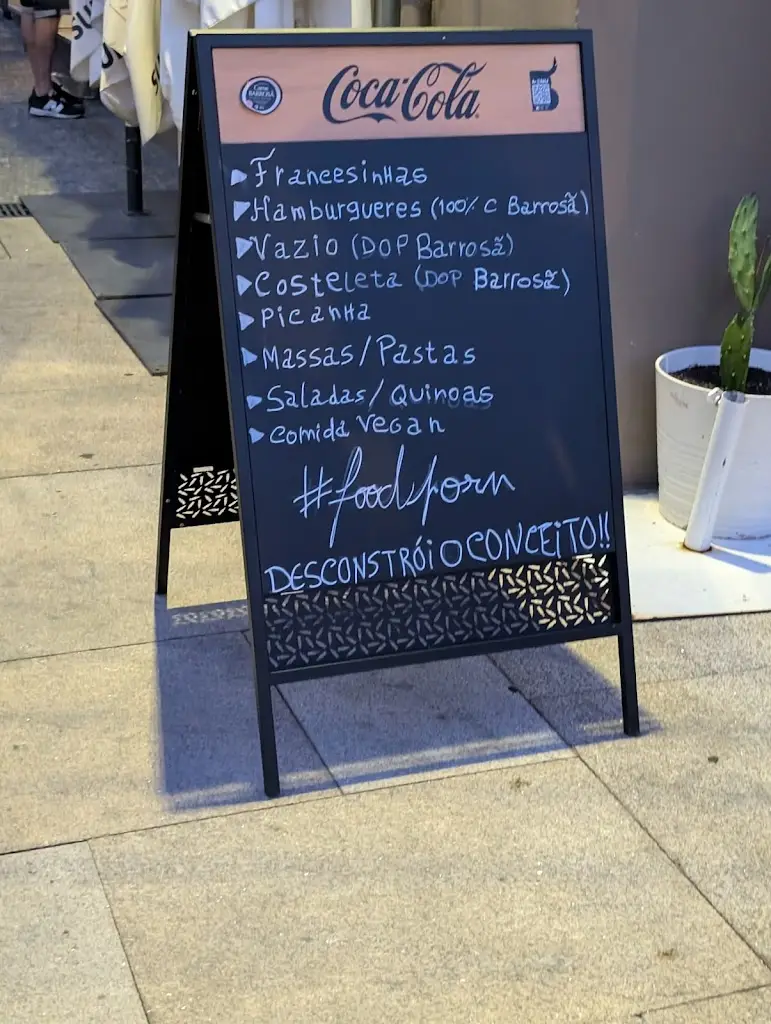 Carne
BARROSÃ
Coca-Cola
Francesinhas
Hamburgueres (100% C Barrosã)
Vazio (DOP Barrosã)
Costeleta (DOP Barrosã)
Picanha
Massas/Pastas
Saladas/Quinoas
Comida Vegan
#foodsporn
DESCONSTRÓI O CONCEITO!!